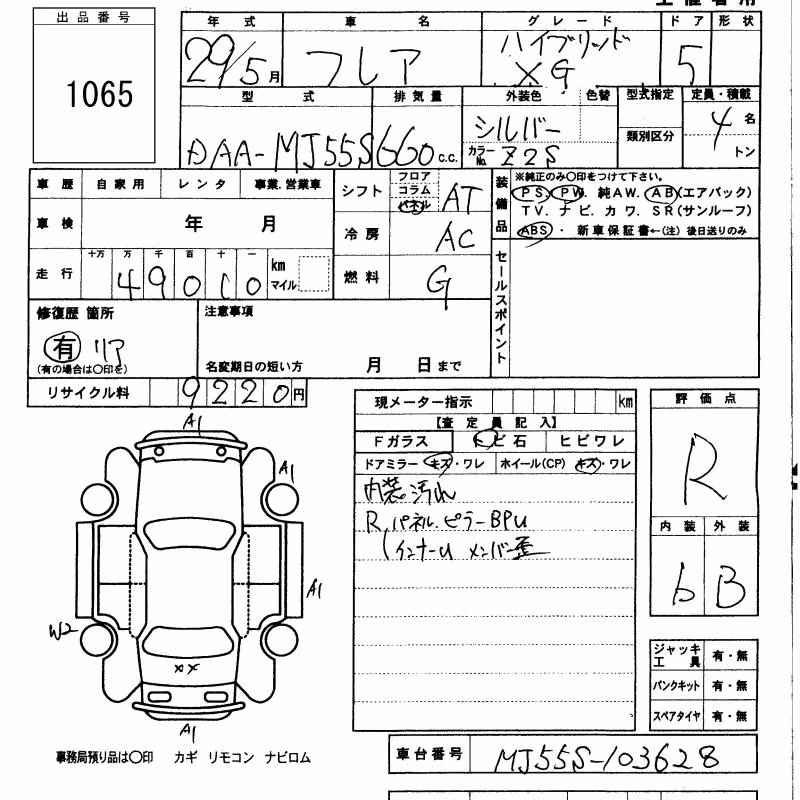 出品番号
1065
年式 車名 グレード ドア 形状
29/5月 フレア ハイブリッド XG 5
型式 排気量 外装色 色替 型式指定 定員・積載
DAA-MJ55S 660 c.c. シルバー 類別区分 4名
カラーNo. Z2S トン
車歴 自家用 レンタ 事業.営業車
車検 年 月
走行 十万 万 千 百 十 一 km マイル
49010
シフト フロア コラム パネル AT
冷房 AC
燃料 G
装備品 ※純正のみ○印をつけて下さい。
PS. PW. 純AW. AB(エアバック)
TV. ナビ. カワ. SR(サンルーフ)
ABS・ 新車保証書←(注) 後日送りのみ
セールスポイント
修復歴 箇所
有 リア
(有の場合は○印を)
注意事項
名変期日の短い方 月 日まで
リサイクル料 9220円
現メーター指示 km
【査定員記入】
Fガラス トビ石 ヒビワレ
ドアミラー キズ・ワレ ホイール(CP) キズ・ワレ
内装汚れ
R.パネル.ピラーBPU
(インナーU メンバー歪
評価点
R
内装 外装
b B
ジャッキ 工具 有・無
パンクキット 有・無
スペアタイヤ 有・無
A1
A1
A1
W2
XX
A1
事務局預り品は○印 カギ リモコン ナビロム
車台番号 MJ55S-103628